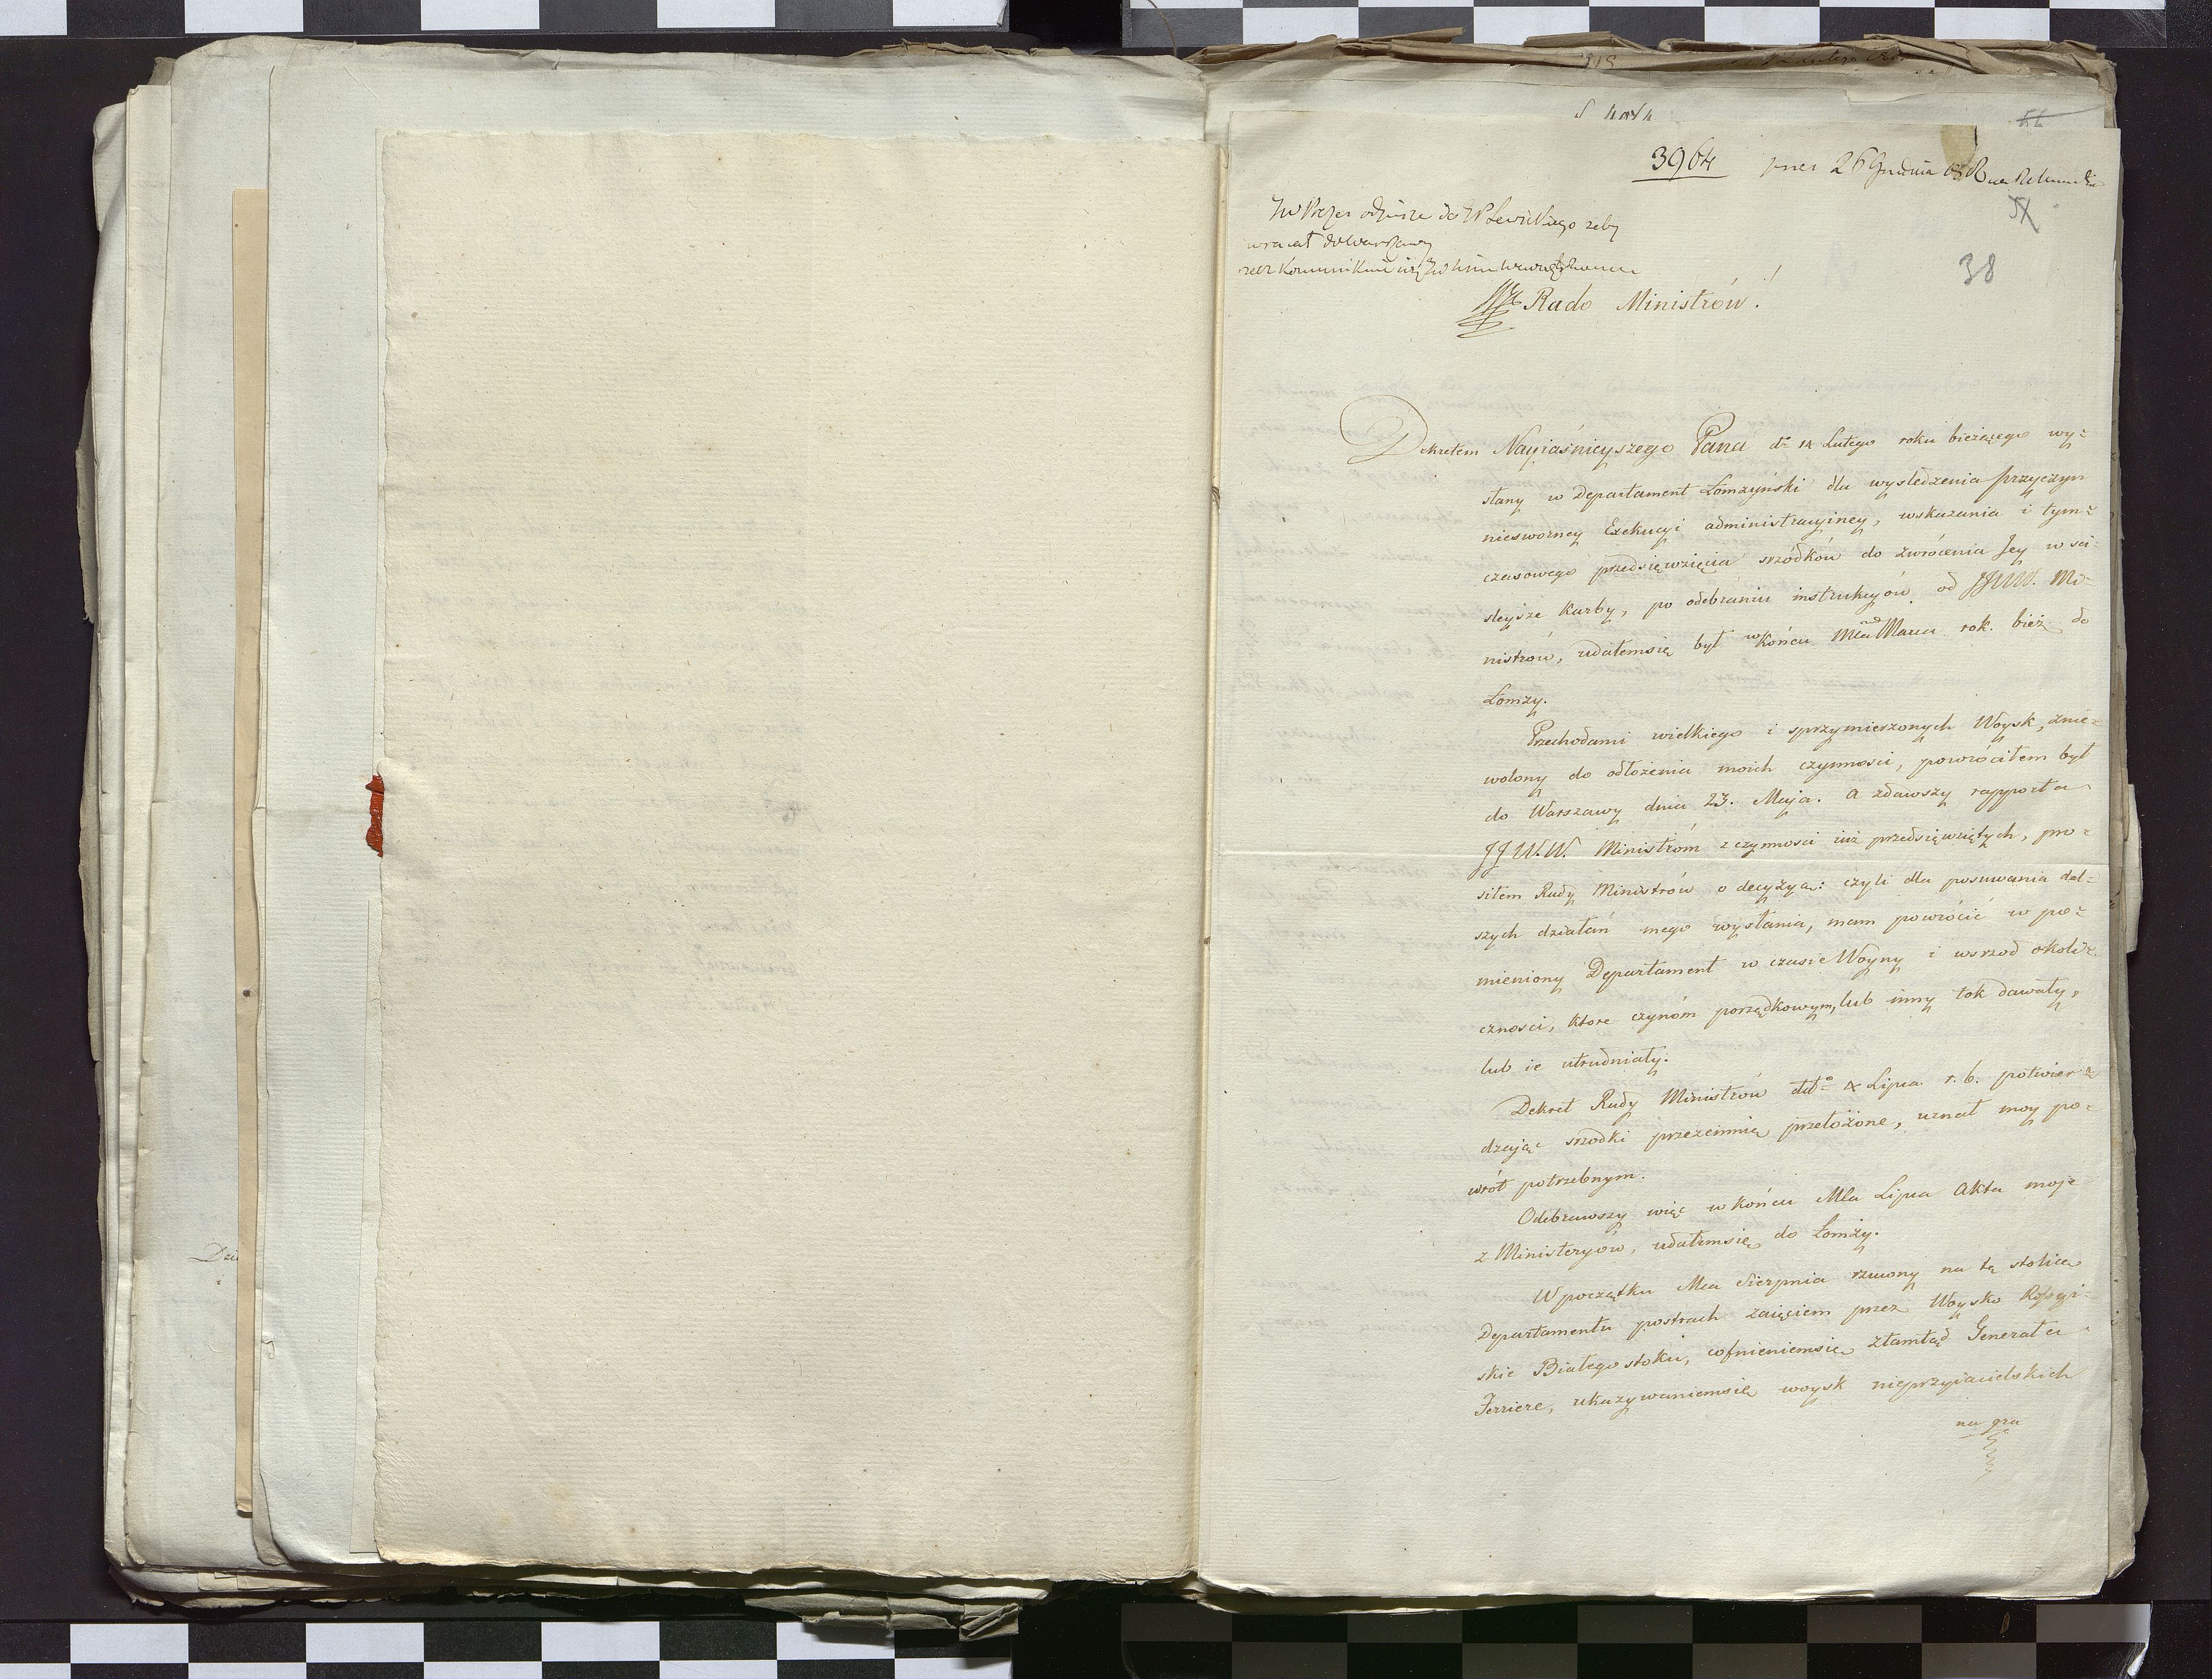 3964 26 Grudnia
38
JW Prezes odpisze do JP Lewickiego zeby
wracał do Warszawy
Rado Ministrów!
Dekretem Nayiaśnieyszego Pana do 14 Lutego roku bieżącego wy=
słany w Departament Łomżyński dla wyśledzenia przyczyn
niesworney Exekucyi administracyiney, wskazania i tym=
czasowego przedsięwzięcia srzódków do zwrócenia Jey w sci=
sleysze karby, po odebraniu instrukcyów od JJWW. Mi=
nistrów, udałemsię był w końcu Mca Marca rok. bież do
Łomży.
Przechodami wielkiego i sprzymierzonych Woysk, znie=
wolony do odłożenia moich czynnosci, powróciłem był
do Warszawy dnia 23. Maja. a zdawszy rapporta
JJW.W. Ministróm z czynnosci iuż przedsięwziętych, pro=
siłem Rady Ministrów o decyzya: czyli dla posuwania dal=
szych działań mego wysłania, mam powrócić w po=
mieniony Departament w czasie Woyny i wsrzod okoli=
cznosci, ktore czynóm porządkowym, lub inny tok dawały,
lub ie utrudniały.
Dekret Rady Ministrów ddto 4 Lipca r. b. potwier=
dzając srzodki przezemnie przełożone, uznał moy po=
wrót potrzebnym.
Odebrawszy więc w końcu Mca Lipca Akta moje
z Ministeryów, udałemsię do Łomży.
W początku Mca Sierpnia rzucony na tę stolice
Departamentu postrach zaięciem przez Woysko Rossyi=
skie Białegostoku, cofnieniemsię ztamtąd Generała
Ferriere, ukazywaniemsię woysk nieprzyiacielskich
na gra